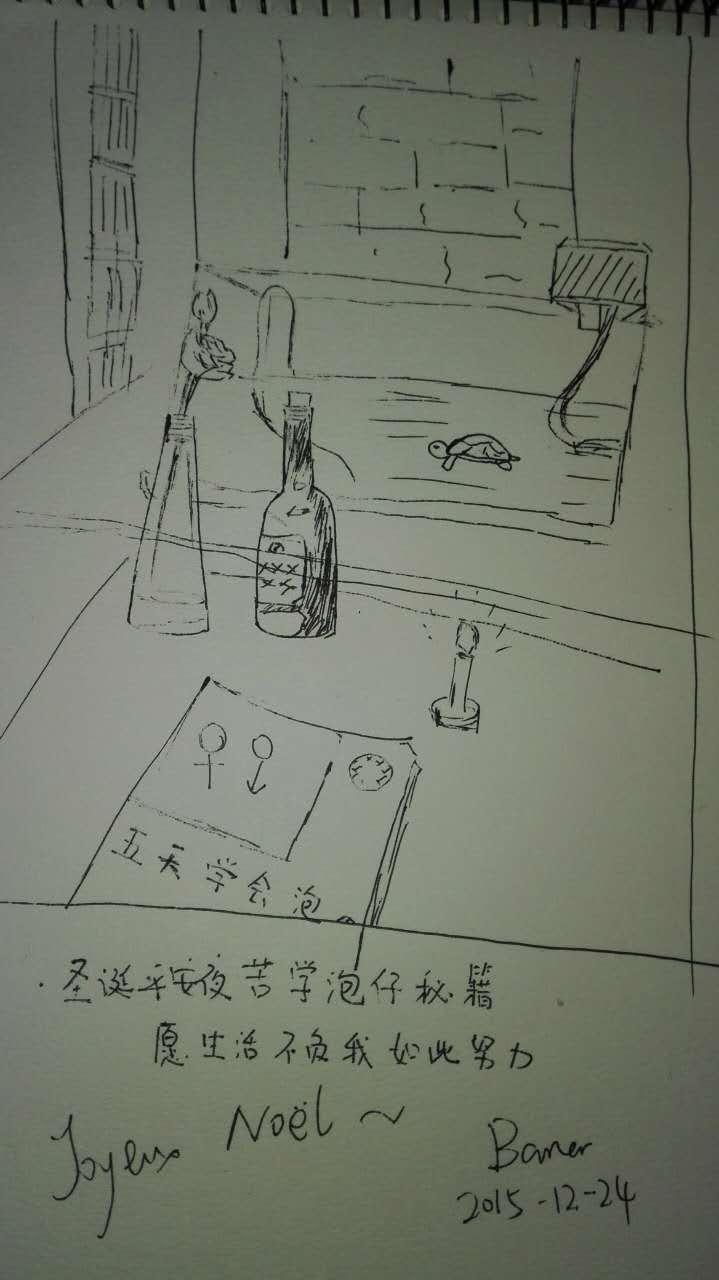 五天学会泡
·圣诞平安夜苦学泡仔秘籍
愿生活不负我如此努力
Joyeux Noël ~
Baner
2015-12-24